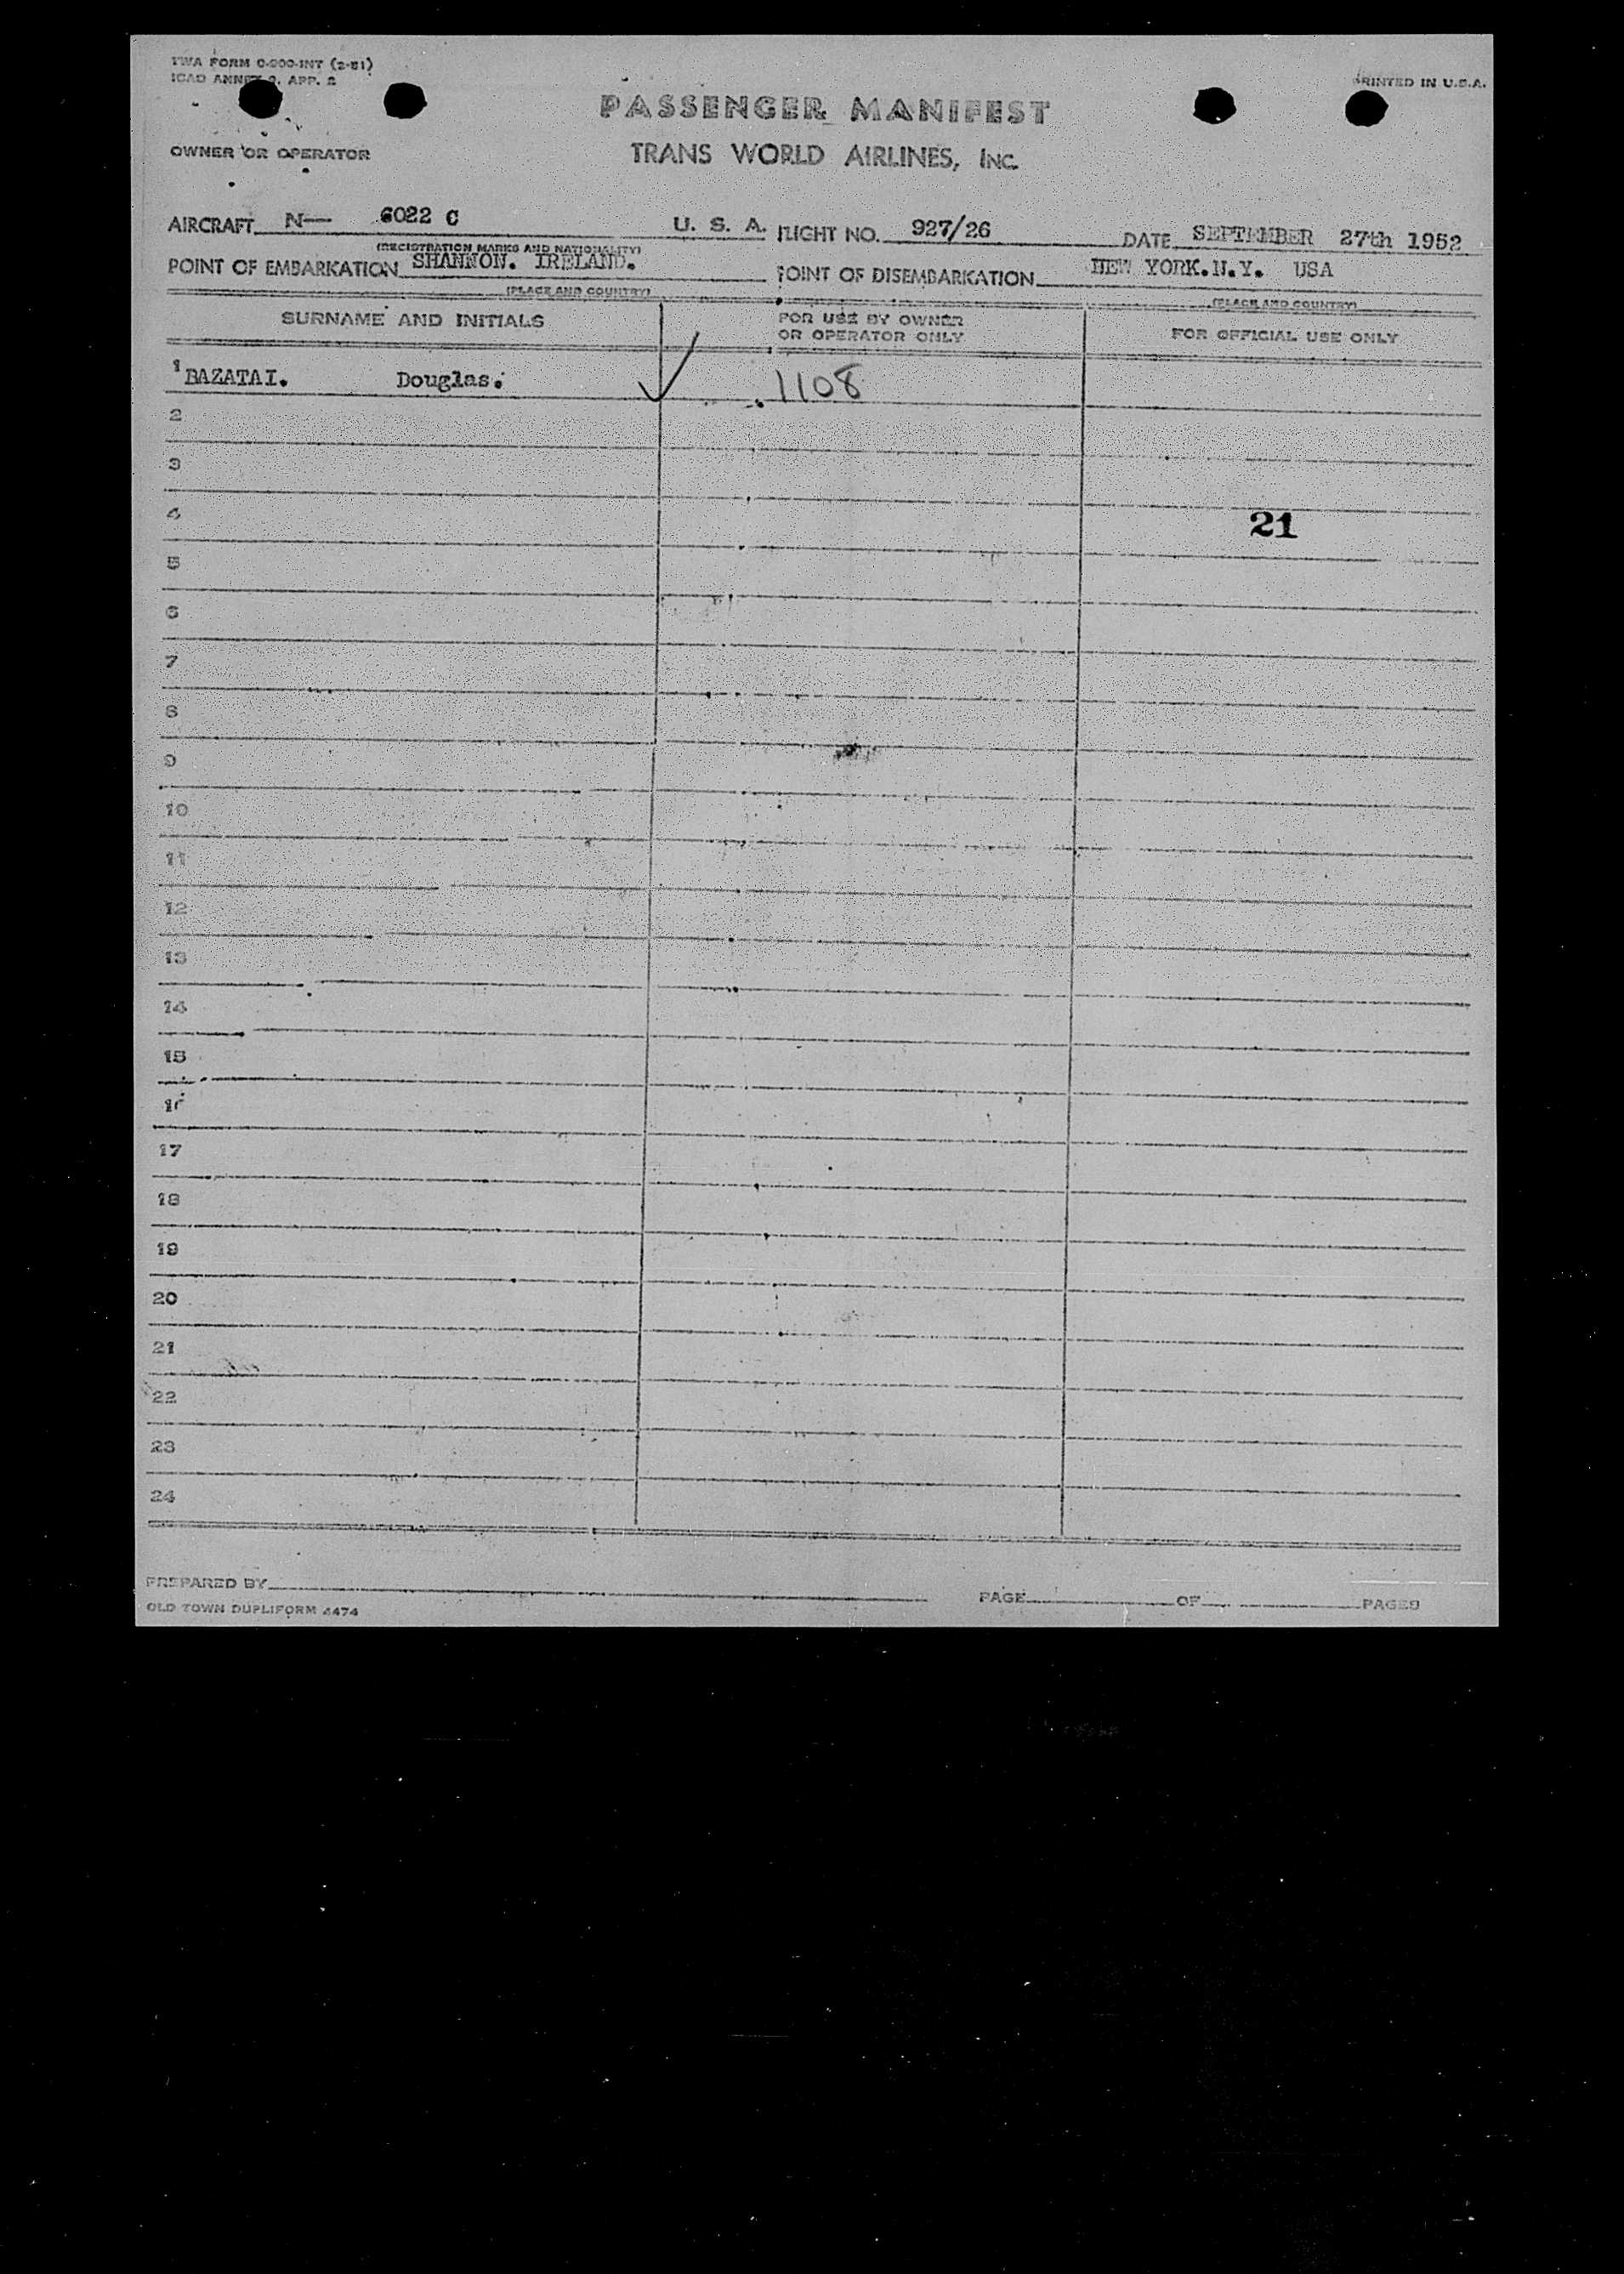 TWA FORM 0-900-INT (2-51)
ICAO ANNEX 9, APP. 2
PRINTED IN U.S.A.
PASSENGER MANIFEST
OWNER OR OPERATOR
TRANS WORLD AIRLINES, INC.
AIRCRAFT N— 6022 C U. S. A. FLIGHT NO. 927/26 DATE SEPTEMBER 27th 1952
(REGISTRATION MARKS AND NATIONALITY)
POINT OF EMBARKATION SHANNON. IRELAND. POINT OF DISEMBARKATION NEW YORK.N.Y. USA
(PLACE AND COUNTRY) (PLACE AND COUNTRY)
SURNAME AND INITIALS
FOR USE BY OWNER
OR OPERATOR ONLY
FOR OFFICIAL USE ONLY
1 BAZATAI. Douglas. 1108
2
3
4 21
5
6
7
8
9
10
11
12
13
14
15
16
17
18
19
20
21
22
23
24
PREPARED BY PAGE OF PAGES
OLD TOWN DUPLIFORM 4474